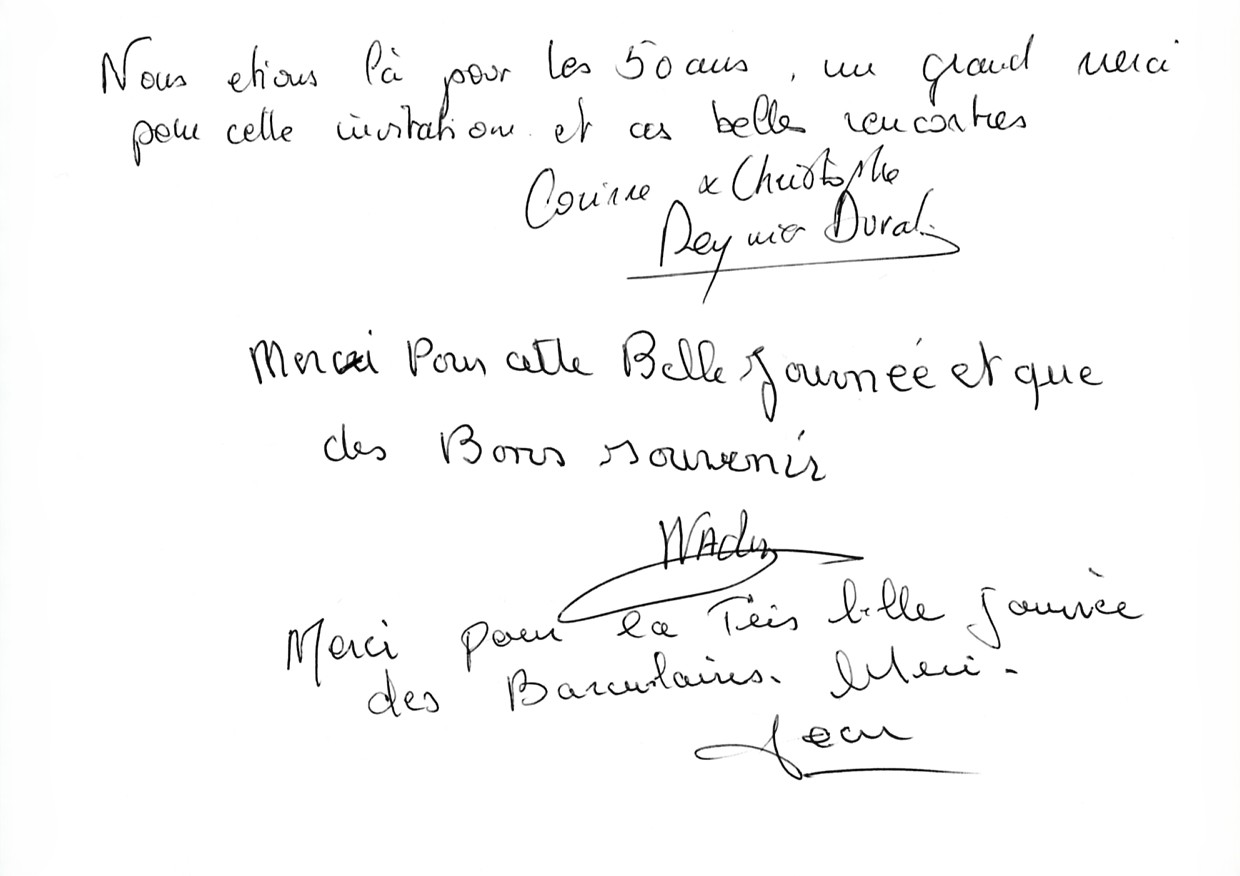 Nous etions là pour les 50 ans, un grand merci
pour cette invitation et ces belles rencontres
Corinne & Christophe
Reynier Durat
Merci Pour cette Belle Journée et que
des Bons souvenir
Merci pour la Très belle Journée
des Merci.
Jean